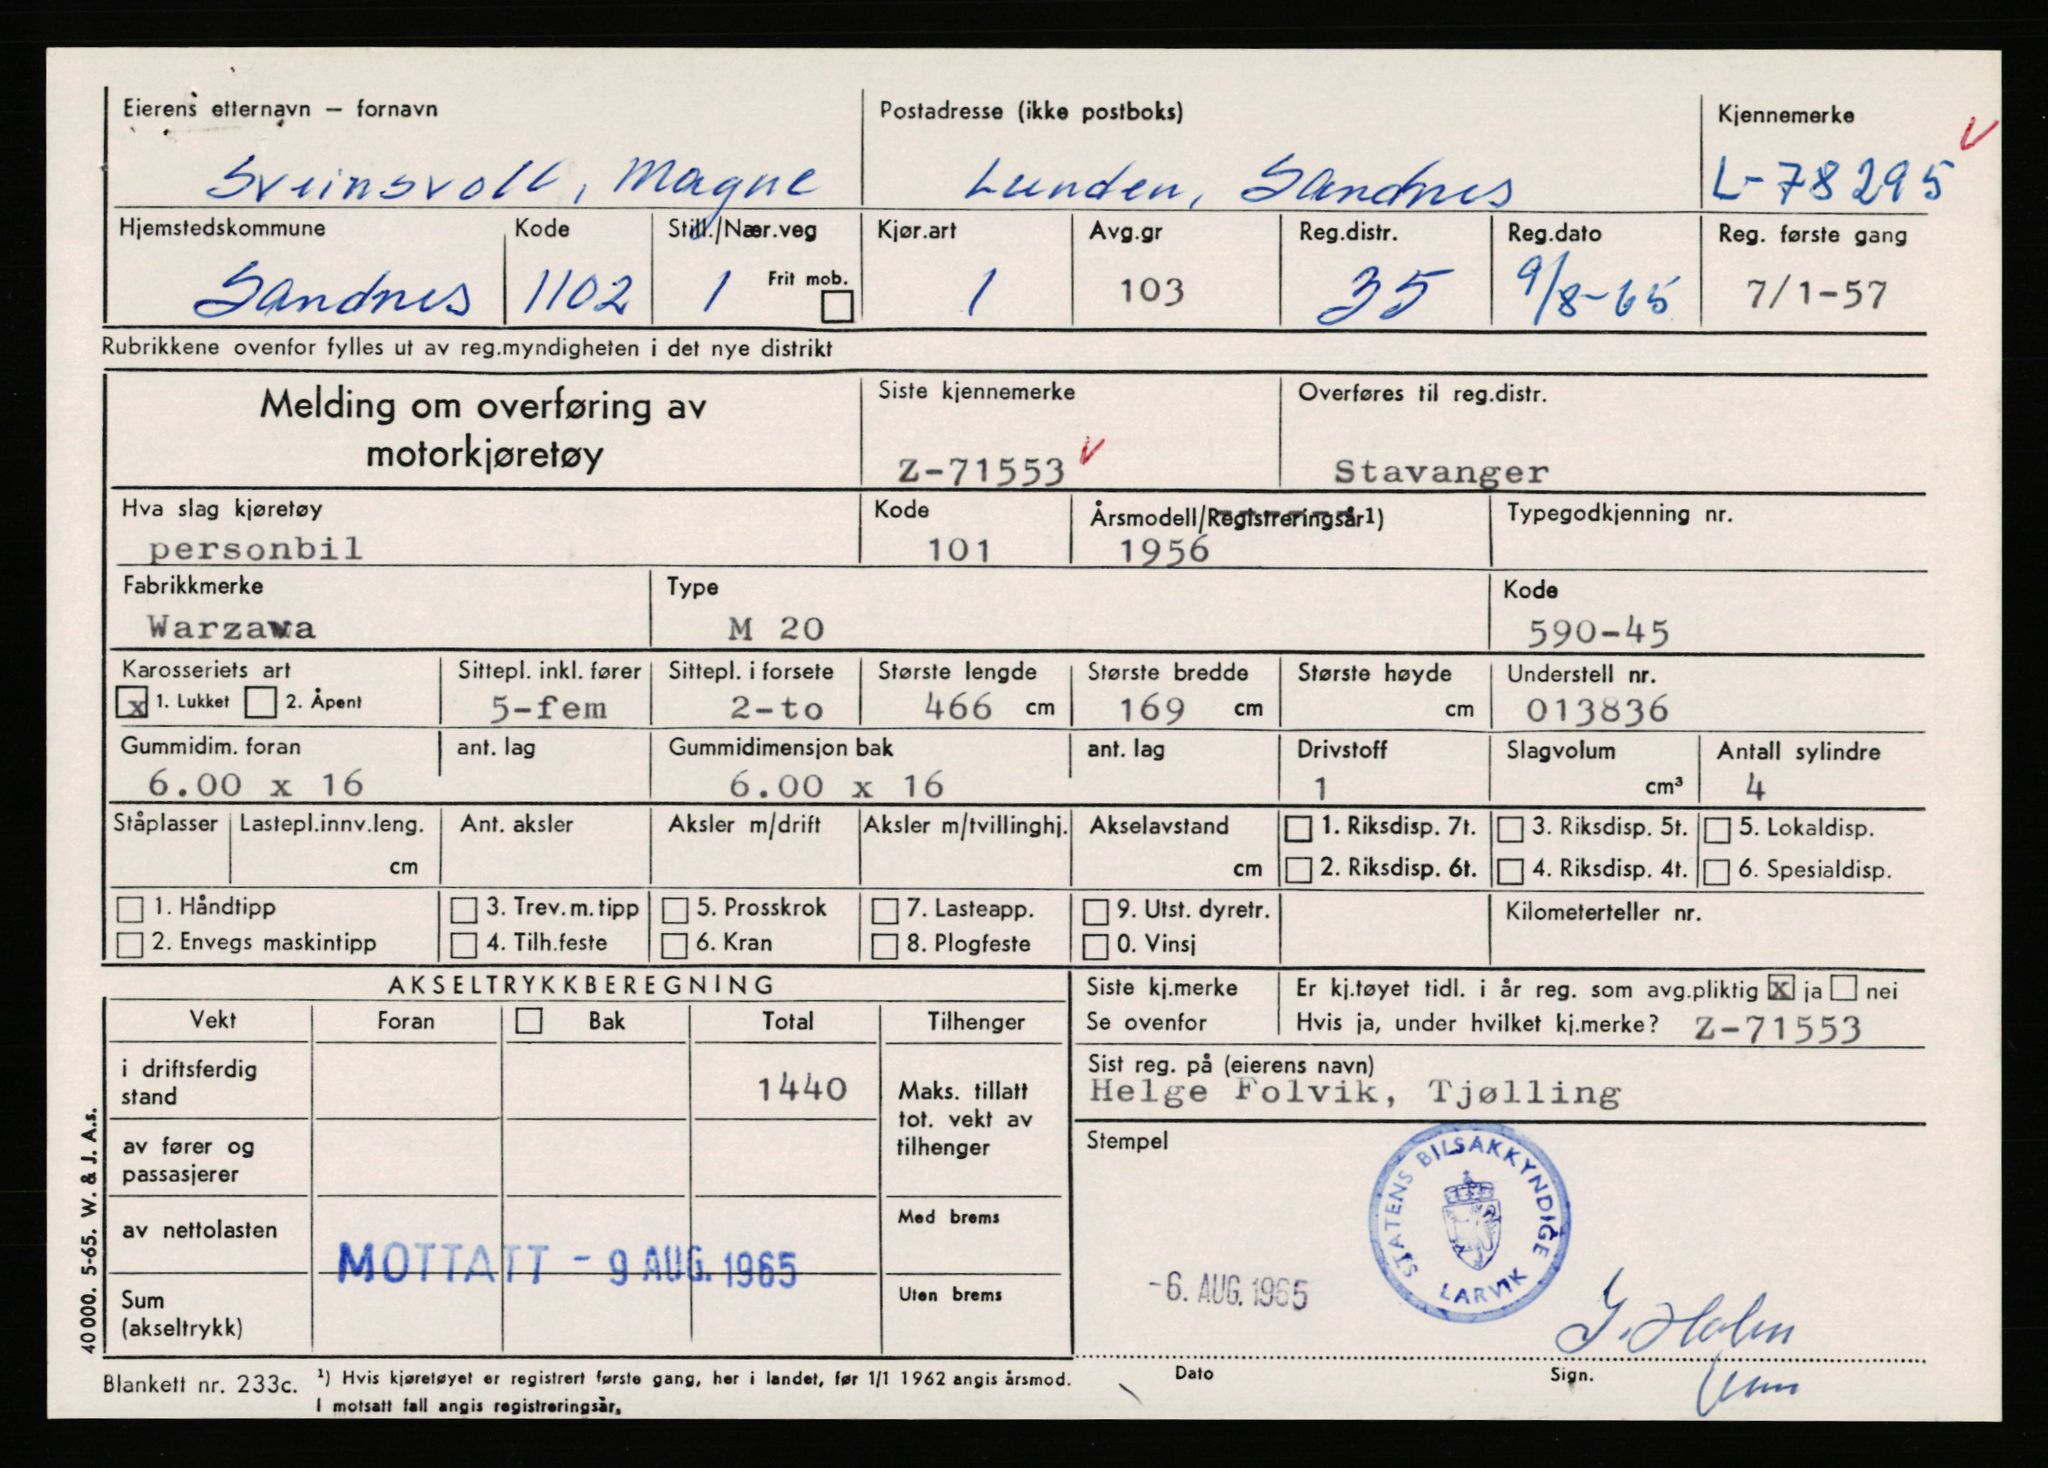 Eierens etternavn — fornavn
Postadresse (ikke postboks)
Kjennemerke
Sveinsvoll, Magne
Lunden, Sandnes
L-78295
Hjemstedskommune
Kode
Still./Nær.veg
Kjør.art
Avg.gr
Reg.distr.
Reg.dato
Reg. første gang
Sandnes
1102
1
Frit mob.
1
103
35
9/8-65
7/1-57
Rubrikkene ovenfor fylles ut av reg.myndigheten i det nye distrikt
Melding om overføring av
motorkjøretøy
Siste kjennemerke
Z-71553
Overføres til reg.distr.
Stavanger
Hva slag kjøretøy
personbil
Kode
101
Årsmodell/Registreringsår1)
1956
Typegodkjenning nr.
Fabrikkmerke
Warzawa
Type
M 20
Kode
590-45
Karosseriets art
x 1. Lukket 2. Åpent
Sittepl. inkl. fører
5-fem
Sittepl. i forsete
2-to
Største lengde
466 cm
Største bredde
169 cm
Største høyde
cm
Understell nr.
013836
Gummidim. foran
6.00 x 16
ant. lag
Gummidimensjon bak
6.00 x 16
ant. lag
Drivstoff
1
Slagvolum
cm³
Antall sylindre
4
Ståplasser
Lastepl.innv.leng.
cm
Ant. aksler
Aksler m/drift
Aksler m/tvillinghj.
Akselavstand
cm
1. Riksdisp. 7t.
3. Riksdisp. 5t.
5. Lokaldisp.
2. Riksdisp. 6t.
4. Riksdisp. 4t.
6. Spesialdisp.
1. Håndtipp
3. Trev. m. tipp
5. Prosskrok
7. Lasteapp.
9. Utst. dyretr.
Kilometerteller nr.
2. Envegs maskintipp
4. Tilh.feste
6. Kran
8. Plogfeste
0. Vinsj
AKSELTRYKKBEREGNING
Vekt
Foran
Bak
Total
Tilhenger
i driftsferdig
stand
1440
Maks. tillatt
tot. vekt av
tilhenger
av fører og
passasjerer
av nettolasten
Med brems
MOTTATT - 9 AUG. 1965
Sum
(akseltrykk)
Uten brems
Siste kj.merke
Se ovenfor
Er kj.tøyet tidl. i år reg. som avg.pliktig x ja nei
Hvis ja, under hvilket kj.merke? Z-71553
Sist reg. på (eierens navn)
Helge Folvik, Tjølling
Stempel
STATENS BILSAKKYNDIGE
LARVIK
-6. AUG. 1965
Dato
Sign.
40 000. 5-65. W. & J. A.s.
Blankett nr. 233c.
1) Hvis kjøretøyet er registrert første gang, her i landet, før 1/1 1962 angis årsmod.
I motsatt fall angis registreringsår.